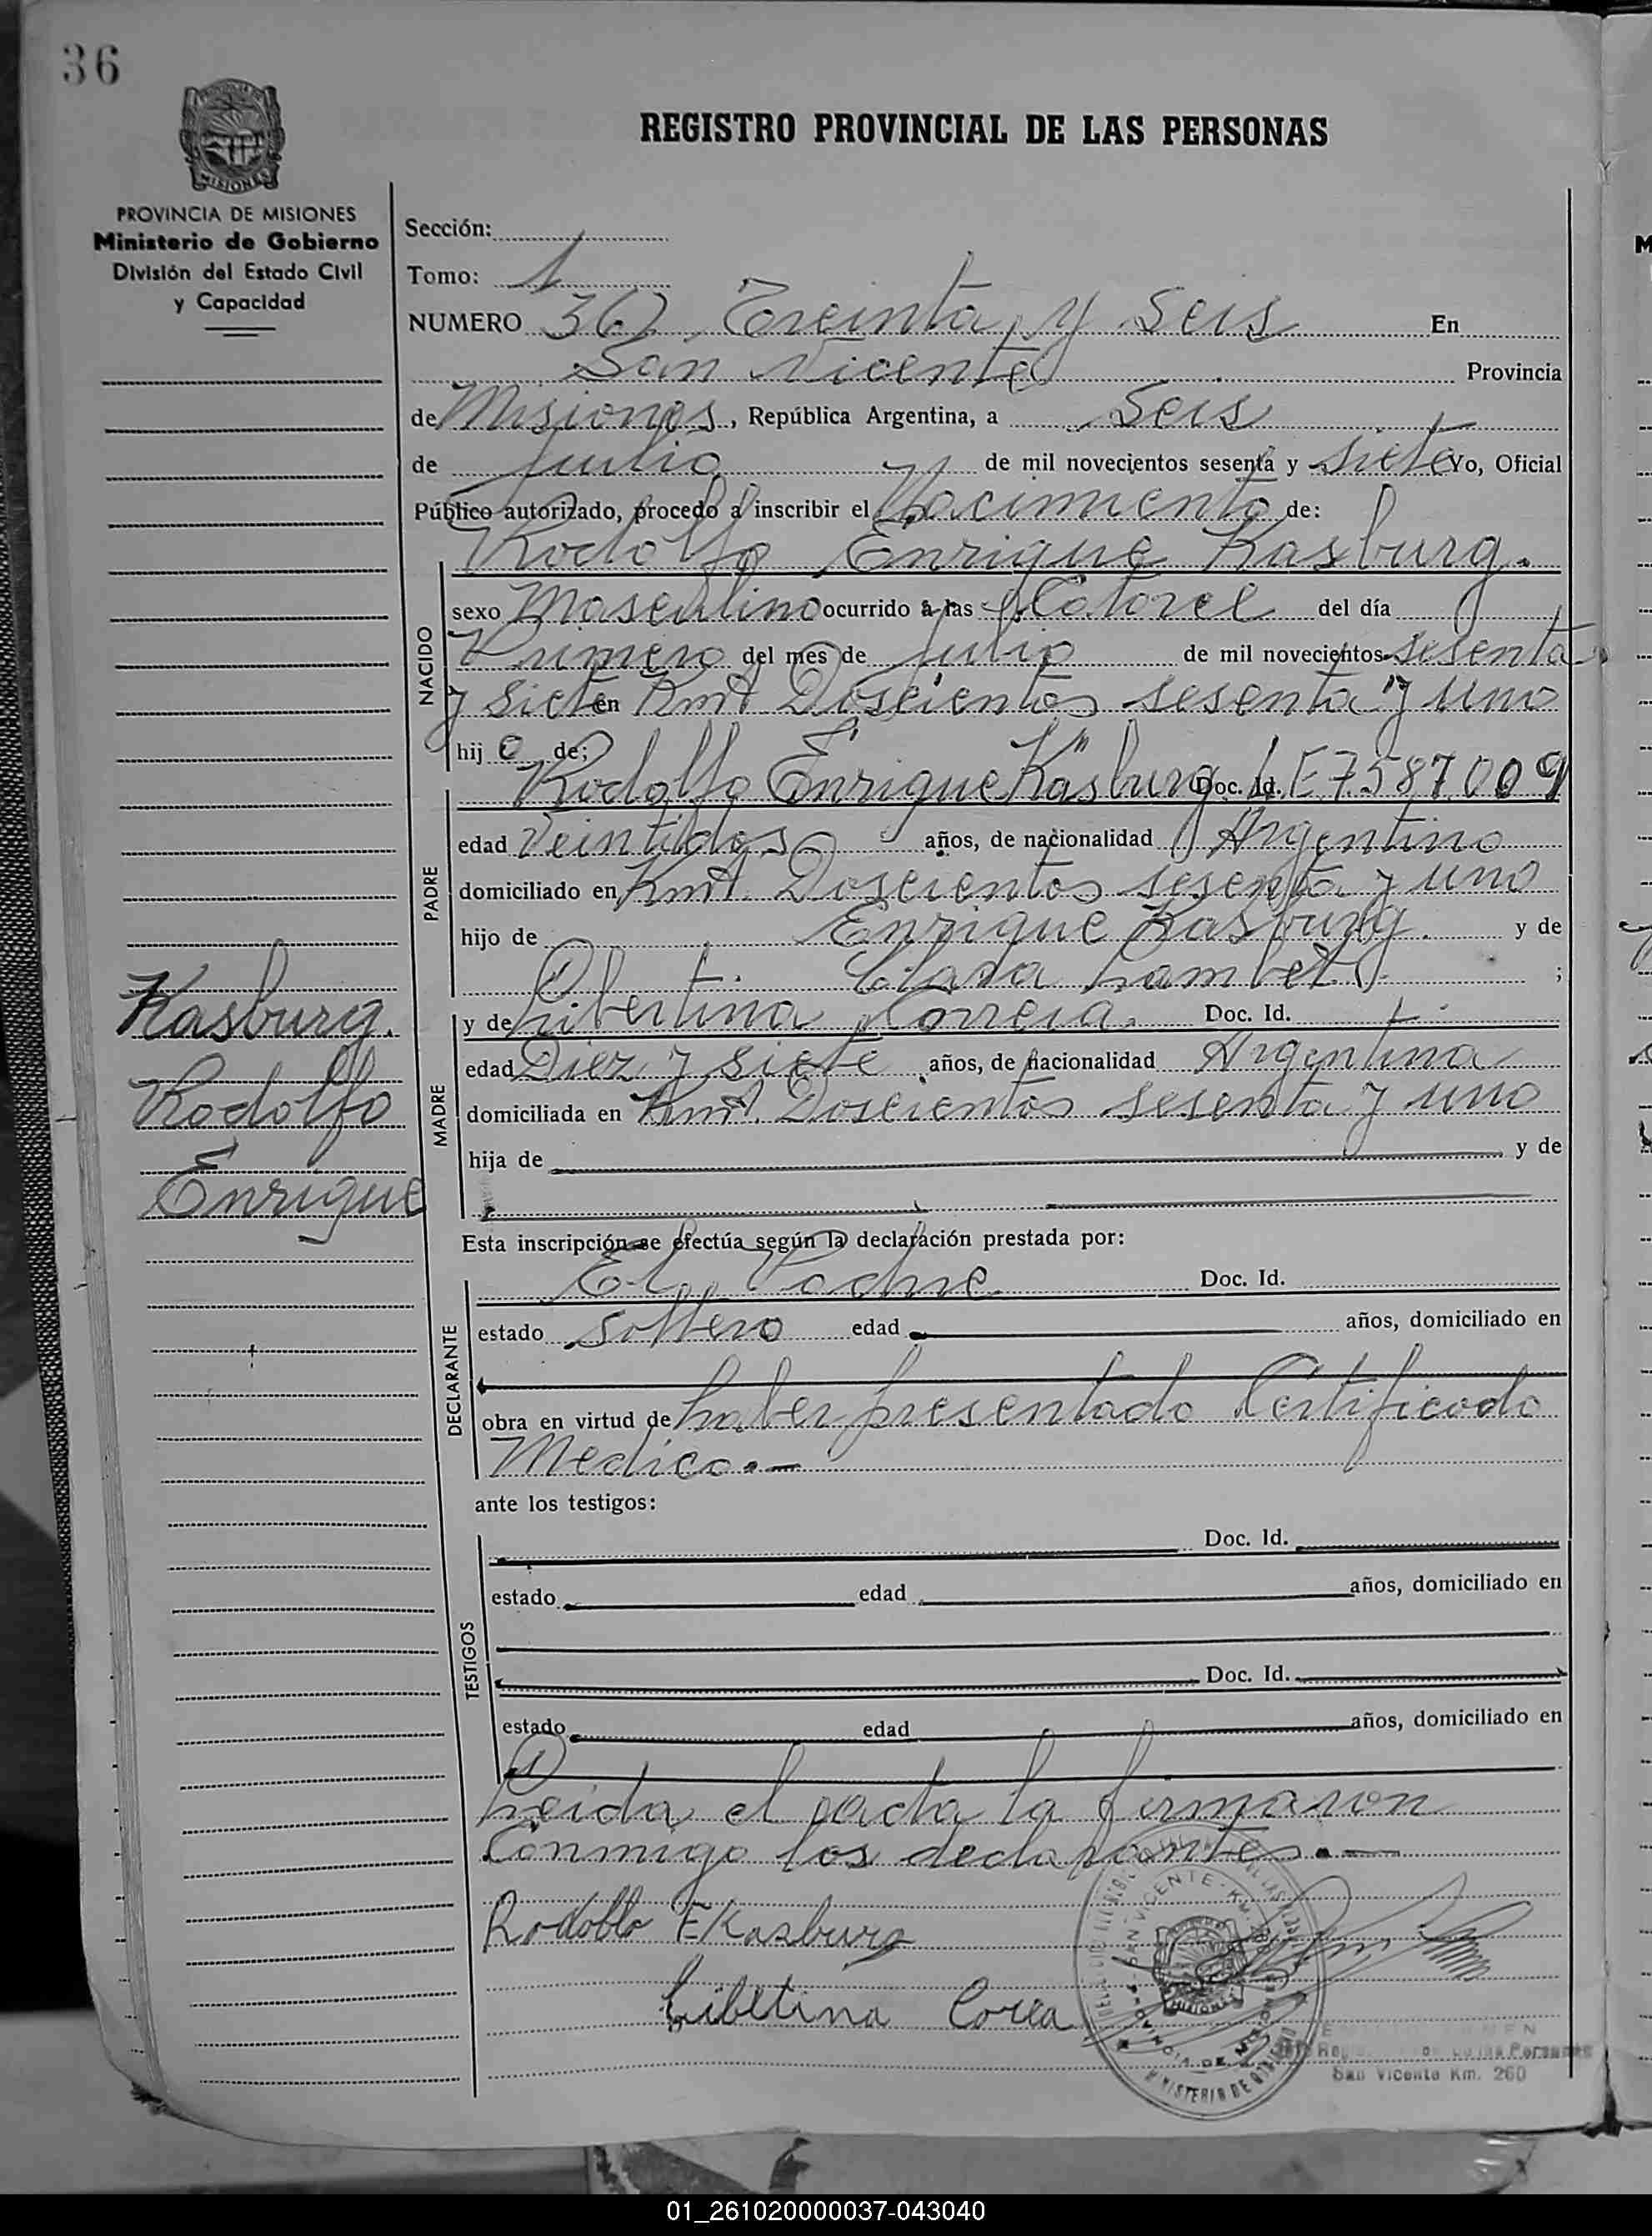 36
REGISTRO PROVINCIAL DE LAS PERSONAS
MISIONES
PROVINCIA DE MISIONES
Ministerio de Gobierno
División del Estado Civil
y Capacidad
Sección:
Tomo: 1
NUMERO 36 Treinta y Seis En
San Vicente Provincia
de Misiones, República Argentina, a Seis
de Julio de mil novecientos sesenta y siete Yo, Oficial
Público autorizado, procedo a inscribir el Nacimiento de:
Rodolfo Enrique Kasburg.
NACIDO
sexo Masculino ocurrido a las Catorce del día
Primero del mes de Julio de mil novecientos sesenta
y siete en Kmt Doscientos sesenta y uno
hij o de;
Rodolfo Enrique Kasburg Doc. Id. L.E 7.587.009
PADRE
edad Veintidos años, de nacionalidad Argentino
domiciliado en Kmt. Doscientos sesenta y uno
hijo de Enrique Kasburg. y de
Clara Lambet. ;
MADRE
y de Libertina Correia. Doc. Id.
edad Diez y siete años, de nacionalidad Argentina
domiciliada en Kmt. Doscientos sesenta y uno
hija de y de
Kasburg.
Rodolfo
Enrique
Esta inscripción se efectúa según la declaración prestada por:
DECLARANTE
El Padre Doc. Id.
estado soltero edad años, domiciliado en
obra en virtud de haber presentado Certificado
Medico.-
ante los testigos:
TESTIGOS
Doc. Id.
estado edad años, domiciliado en
Doc. Id.
estado edad años, domiciliado en
Leida el acta la firmaron
Conmigo los declarantes.-
Rodolfo E Kasburg
Libetina Correa
SAN VICENTE - KM. 260
PROVINCIA DE MISIONES
MINISTERIO DE GOBIERNO
San Vicente Km. 260
01_261020000037-043040